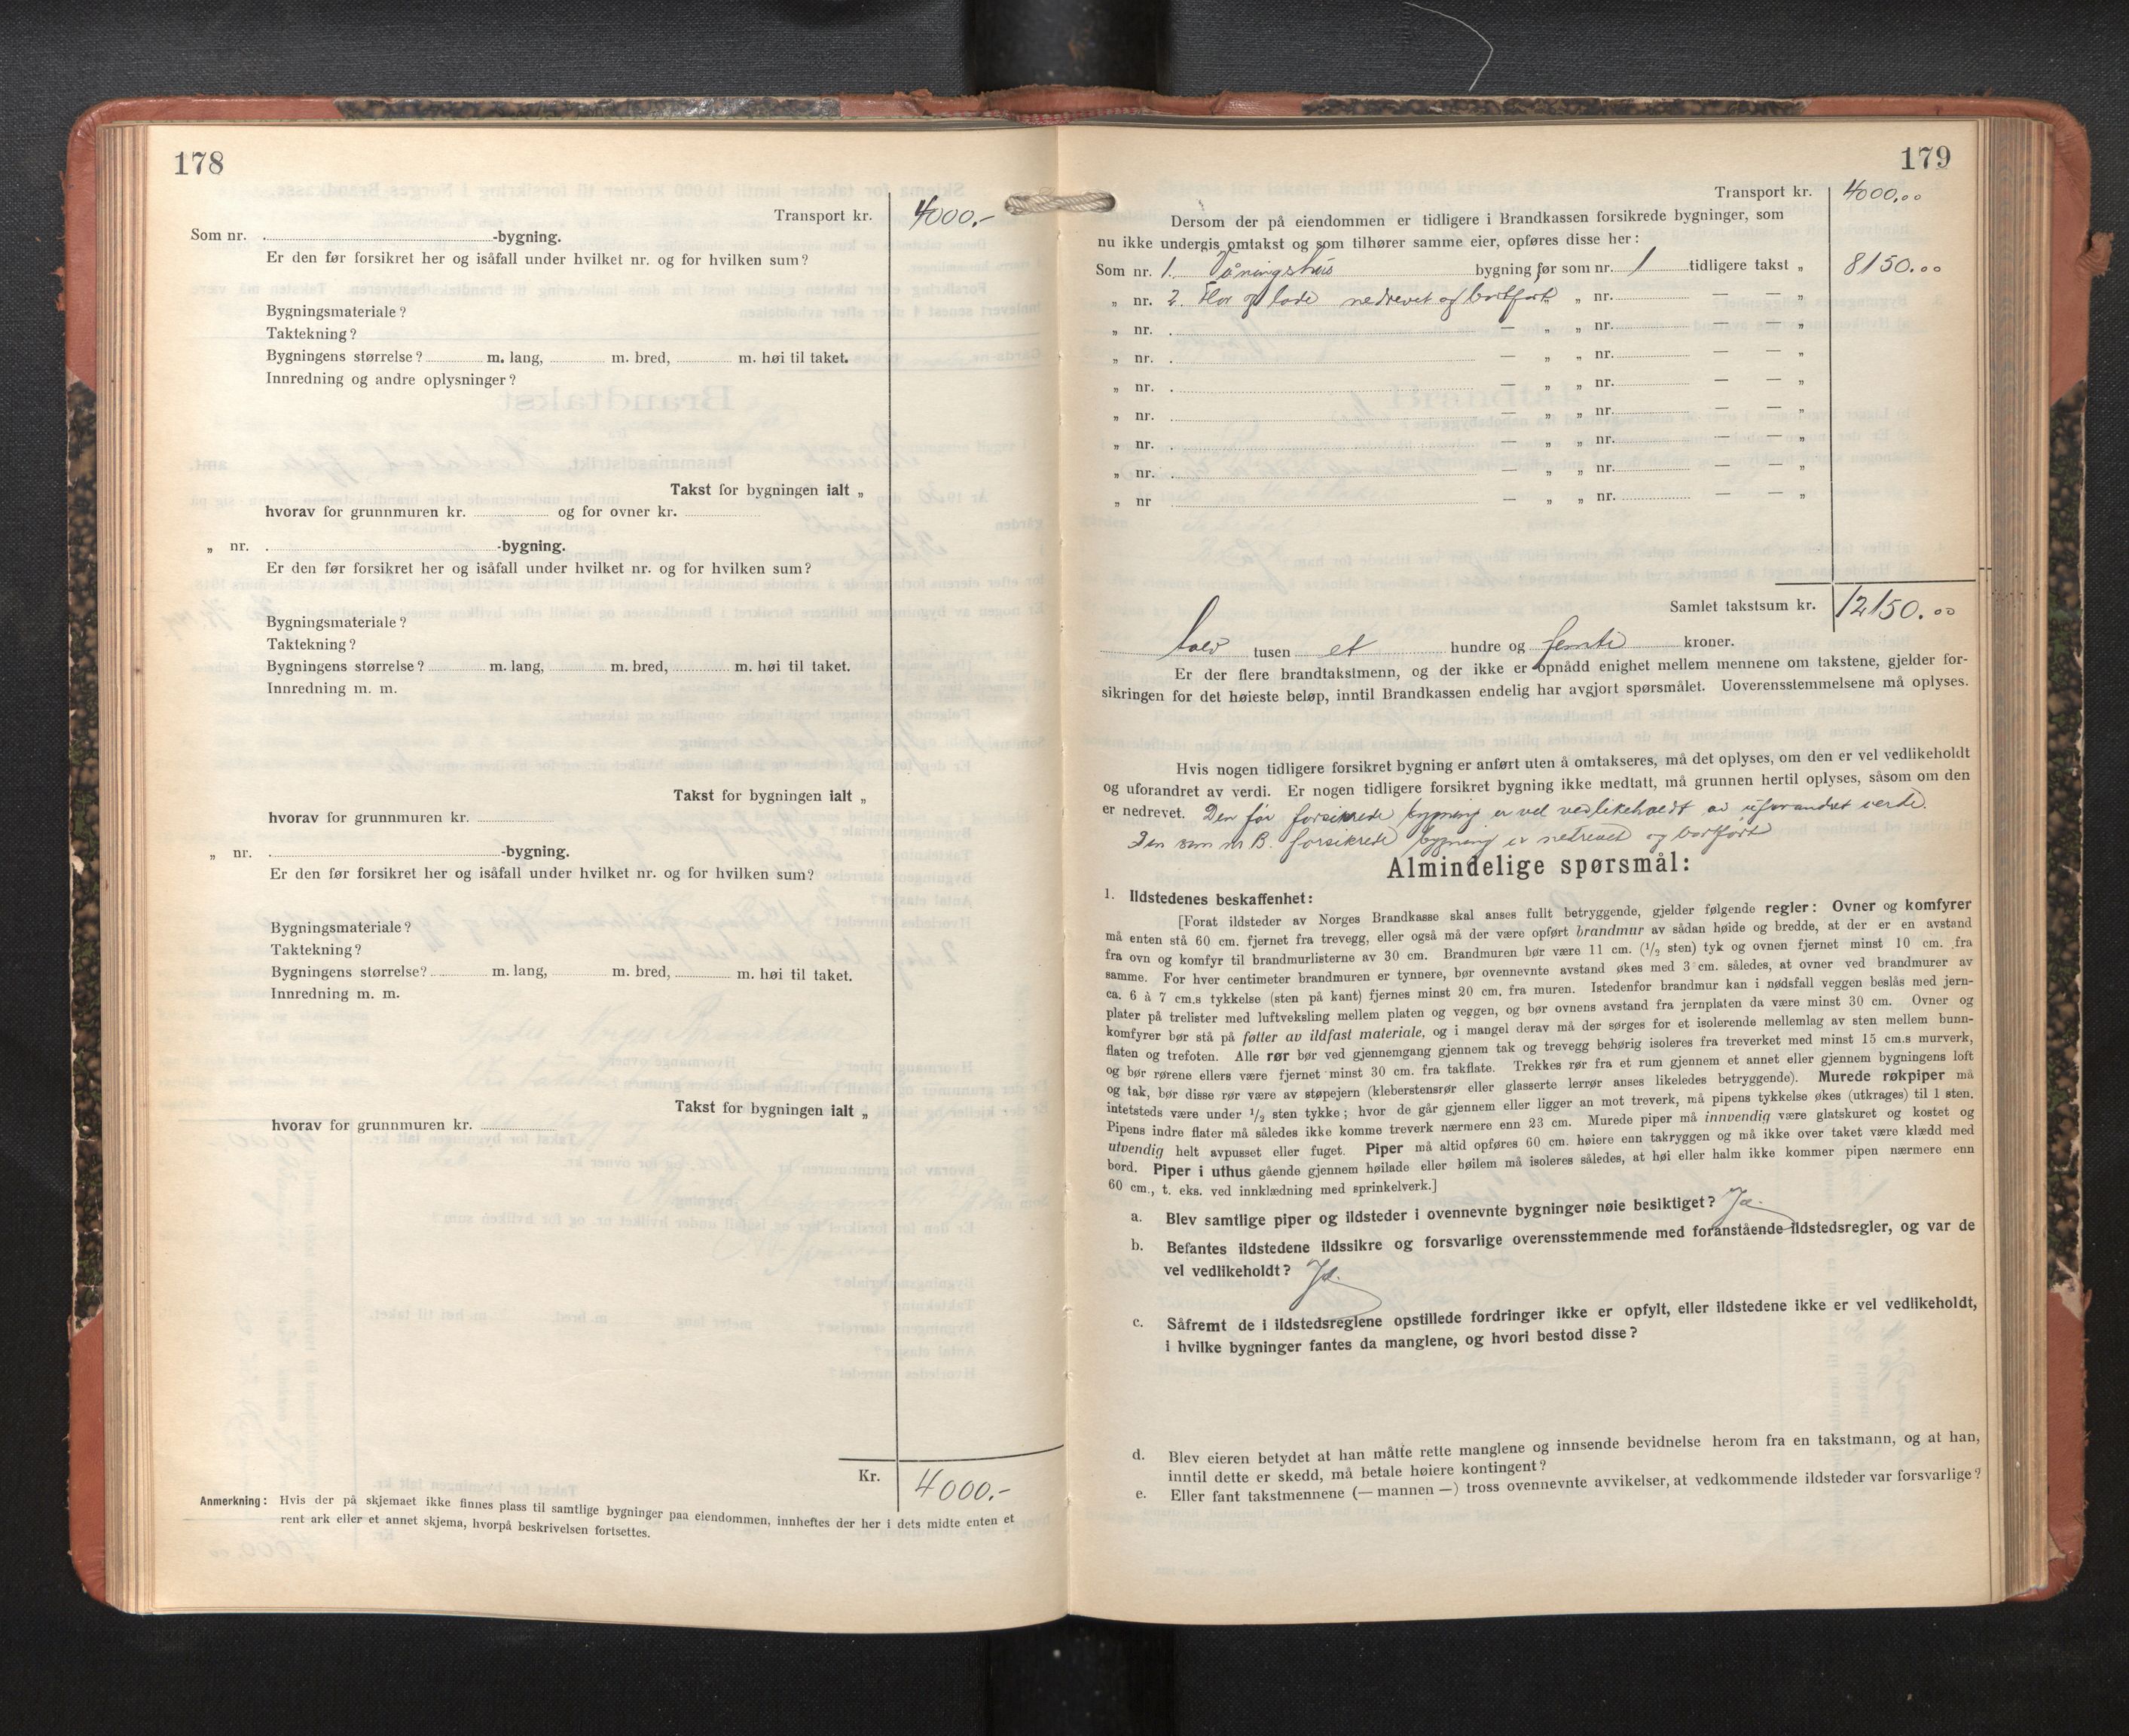 178
Transport kr. 4000.-
Som nr. -bygning.
Er den før forsikret her og isåfall under hvilket nr. og for hvilken sum?
Bygningsmateriale?
Taktekning?
Bygningens størrelse? m. lang, m. bred, m. høi til taket.
Innredning og andre oplysninger?
Takst for bygningen ialt „
hvorav for grunnmuren kr. og for ovner kr.
„ nr. -bygning.
Er den før forsikret her og isåfall under hvilket nr. og for hvilken sum?
Bygningsmateriale?
Taktekning?
Bygningens størrelse? m. lang, m. bred, m. høi til taket.
Innredning m. m.
Takst for bygningen ialt „
hvorav for grunnmuren kr.
„ nr. -bygning.
Er den før forsikret her og isåfall under hvilket nr. og for hvilken sum?
Bygningsmateriale?
Taktekning?
Bygningens størrelse? m. lang, m. bred, m. høi til taket.
Innredning m. m.
Takst for bygningen ialt „
hvorav for grunnmuren kr.
Kr. 4000.-
Anmerkning: Hvis der på skjemaet ikke finnes plass til samtlige bygninger paa eiendommen, innheftes der her i dets midte enten et
rent ark eller et annet skjema, hvorpå beskrivelsen fortsettes.
179
Transport kr. 4000.00
Dersom der på eiendommen er tidligere i Brandkassen forsikrede bygninger, som
nu ikke undergis omtakst og som tilhører samme eier, opføres disse her:
Som nr. 1. Våningshus bygning før som nr. 1 tidligere takst „ 8150.00
„ nr. 2. Flor og lade nedrevet og bortført „ nr. — — „
„ nr. . — „ „ nr. — — „
„ nr. . — „ „ nr. — — „
„ nr. . — „ „ nr. — — „
„ nr. . — „ „ nr. — — „
„ nr. . — „ „ nr. — — „
„ nr. . — „ „ nr. — — „
„ nr . — „ „ nr. — — „
Samlet takstsum kr. 12150.00
tolv tusen et hundre og femti kroner.
Er der flere brandtakstmenn, og der ikke er opnådd enighet mellem mennene om takstene, gjelder for-
sikringen for det høieste beløp, inntil Brandkassen endelig har avgjort spørsmålet. Uoverensstemmelsene må oplyses.
Hvis nogen tidligere forsikret bygning er anført uten å omtakseres, må det oplyses, om den er vel vedlikeholdt
og uforandret av verdi. Er nogen tidligere forsikret bygning ikke medtatt, må grunnen hertil oplyses, såsom om den
er nedrevet. Den før forsikrede bygning er vel vedlikeholdt av uforandret verdi.
Den som nr B. forsikrede bygning er netrevet og bortført
Almindelige spørsmål:
1. Ildstedenes beskaffenhet:
[Forat ildsteder av Norges Brandkasse skal anses fullt betryggende, gjelder følgende regler: Ovner og komfyrer
må enten stå 60 cm. fjernet fra trevegg, eller også må der være opført brandmur av sådan høide og bredde, at der er en avstand
fra ovn og komfyr til brandmurlisterne av 30 cm. Brandmuren bør være 11 cm. (1/2 sten) tyk og ovnen fjernet minst 10 cm. fra
samme. For hver centimeter brandmuren er tynnere, bør ovennevnte avstand økes med 3 cm. således, at ovner ved brandmurer av
ca. 6 à 7 cm.s tykkelse (sten på kant) fjernes minst 20 cm. fra muren. Istedenfor brandmur kan i nødsfall veggen beslås med jern-
plater på trelister med luftveksling mellem platen og veggen, og bør ovnens avstand fra jernplaten da være minst 30 cm. Ovner og
komfyrer bør stå på føtter av ildfast materiale, og i mangel derav må der sørges for et isolerende mellemlag av sten mellem bunn-
flaten og trefoten. Alle rør bør ved gjennemgang gjennem tak og trevegg behørig isoleres fra treverket med minst 15 cm.s murverk,
og bør rørene ellers være fjernet minst 30 cm. fra takflate. Trekkes rør fra et rum gjennem et annet eller gjennem bygningens loft
og tak, bør disse rør være av støpejern (kleberstensrør eller glasserte lerrør anses likeledes betryggende). Murede røkpiper må
intetsteds være under 1/2 sten tykke; hvor de går gjennem eller ligger an mot treverk, må pipens tykkelse økes (utkrages) til 1 sten.
Pipens indre flater må således ikke komme treverk nærmere enn 23 cm. Murede piper må innvendig være glatskuret og kostet og
utvendig helt avpusset eller fuget. Piper må altid opføres 60 cm. høiere enn takryggen og må ikke over taket være klædd med
bord. Piper i uthus gående gjennem høilade eller høilem må isoleres således, at høi eller halm ikke kommer pipen nærmere enn
60 cm., t. eks. ved innklædning med sprinkelverk.]
a. Blev samtlige piper og ildsteder i ovennevnte bygninger nøie besiktiget? Ja.
b. Befantes ildstedene ildssikre og forsvarlige overensstemmende med foranstående ildstedsregler, og var de
vel vedlikeholdt? Ja.
c. Såfremt de i ildstedsreglene opstillede fordringer ikke er opfylt, eller ildstedene ikke er vel vedlikeholdt,
i hvilke bygninger fantes da manglene, og hvori bestod disse?
d. Blev eieren betydet at han måtte rette manglene og innsende bevidnelse herom fra en takstmann, og at han,
inntil dette er skedd, må betale høiere kontingent?
e. Eller fant takstmennene (— mannen —) tross ovennevnte avvikelser, at vedkommende ildsteder var forsvarlige?